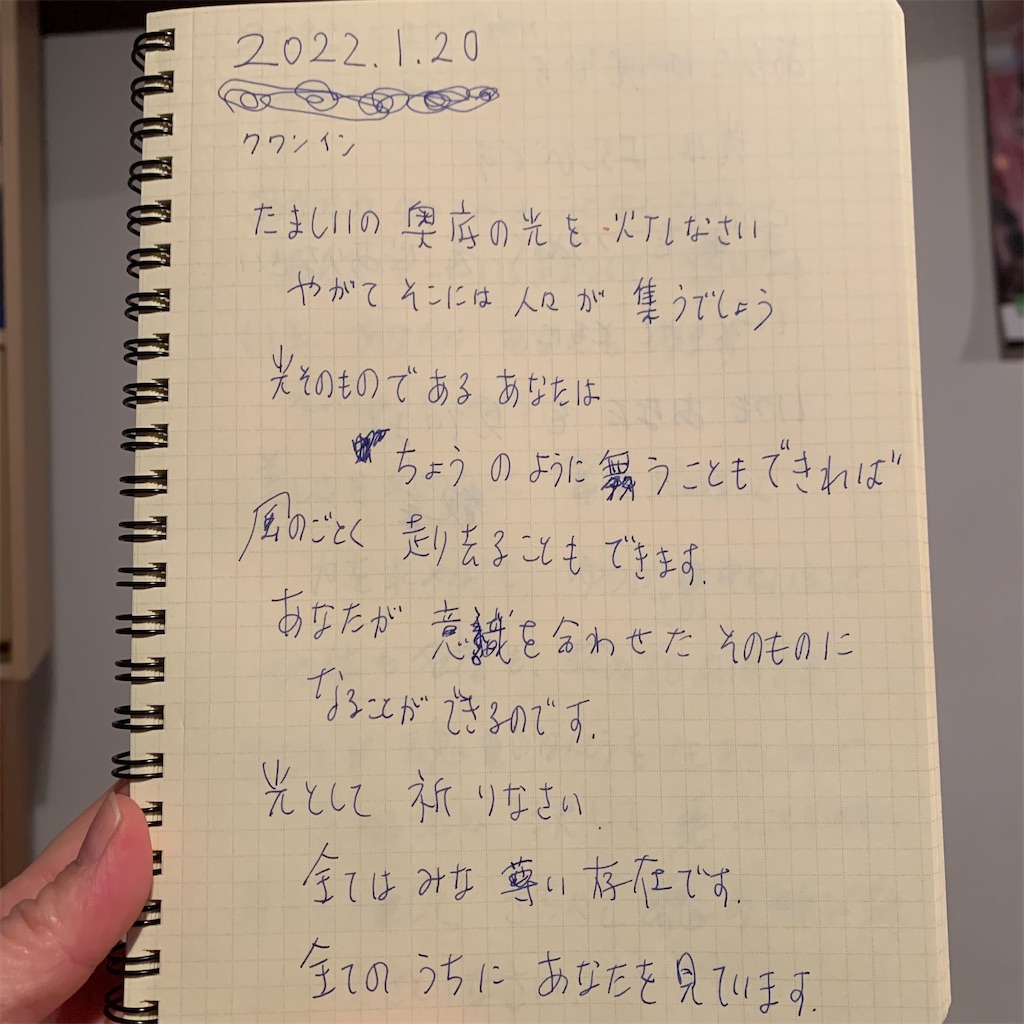 2022.1.20
クワンイン
たましいの 奥底の光を 灯しなさい
やがて そこには 人々が 集うでしょう
光そのものである あなたは
ちょうのように 舞うこともできれば
風のごとく 走り去ることも できます.
あなたが 意識を合わせた そのものに
なることが できるのです.
光として 祈りなさい.
全ては みな 尊い 存在です.
全ての うちに あなたを 見ています.